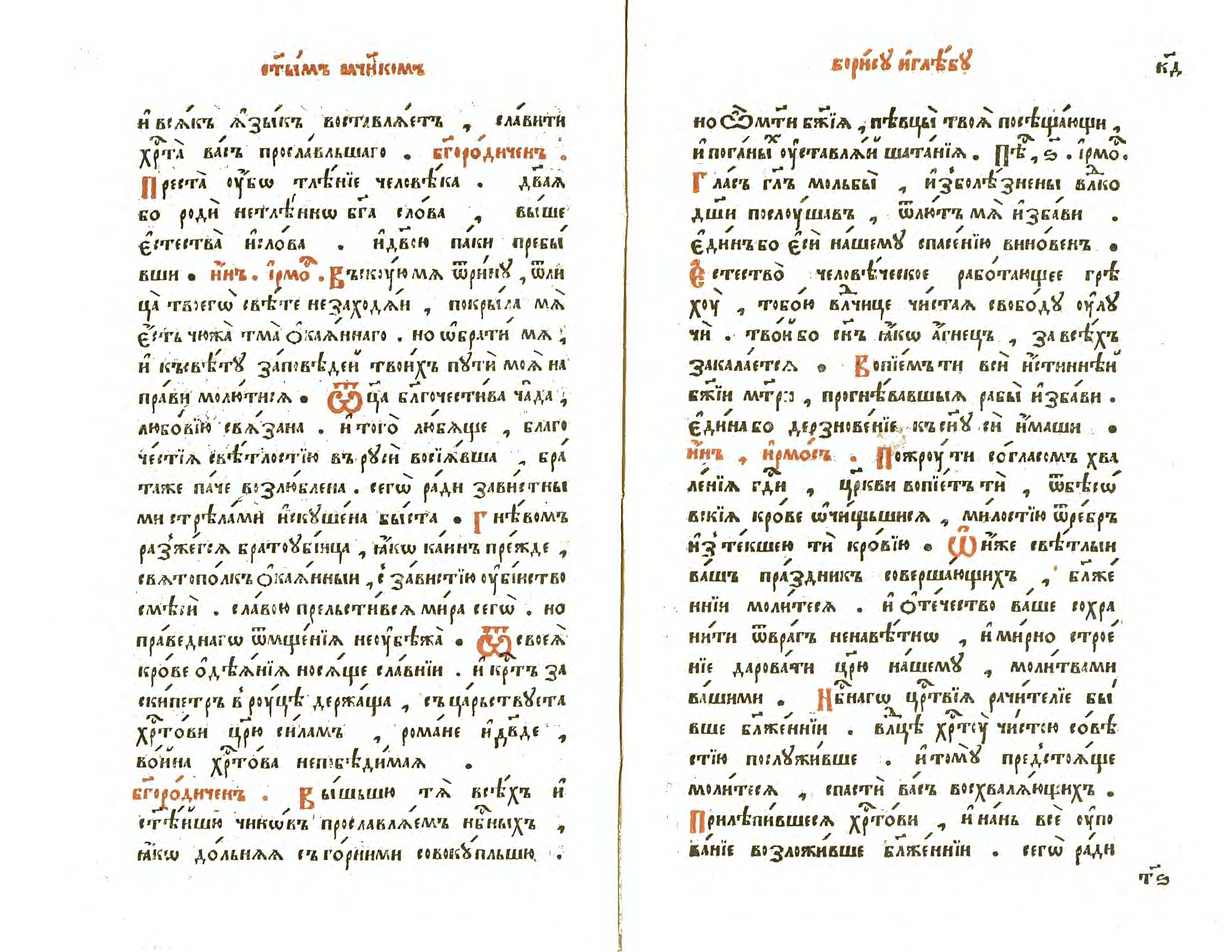 ст҃ы́мъ мч҃нкомъ
и҆ всѧ́къ ѧ҆зы́къ воставлѧ́етъ , сла́вити
хрⷭ҇та̀ ва́съ просла́вльшаго . бг҃оро́диченъ .
Преста̀ ᲂу҆́бѡ тлѣ́нїе человѣ́ка . два́ѧ
бо родѝ нетлѣ́ннѡ бг҃а сло́ва , вы́ше
є҆стества̀ и҆сло́ва . и҆дво́ю па́ки пребы́
вши . и҆́нъ . і҆рмоⷭ҇ . Въску́ю мѧ ѿри́ну , ѿли
ца̀ твоегѡ̀ свѣ́те незаходѧ́и , покры́ла мѧ̀
є҆́сть чюжа̀ тма̀ ѻ҆каѧ́ннаго . но ѡ҆брати́ мѧ ,
и҆ късвѣ́ту за́повѣдей твои́хъ путѝ моѧ̀ на
пра́ви молю́тисѧ . Ѿц҃а̀ бл҃гочести́ва ча̑да ,
любо́вїю свѧ́зана . и҆ того̀ лю́бѧще , благо
че́стїѧ свѣ́тлостїю въ руси́ восїѧ́вша , бра́
таже па́че возлю́блена . сегѡ̀ ра́ди зави́стны
ми стрѣла́ми и҆скꙋше́на бы́ста . Гнѣ́вомъ
разже́гсѧ братоубі́йца , ꙗ҆́кѡ ка́инъ пре́жде ,
свѧтопо́лкъ ѻ҆каѧ́нныи , с̾ за́вистїю ᲂу҆бі́йство
смѣси̑ . сла́вою прельсти́всѧ ми́ра сегѡ̀ . но
пра́веднагѡ ѿмще́нїѧ неоубѣжа̀ . Ѿ своеѧ̀
кро́ве ѻ҆дѣѧ́нїѧ носѧ́ще сла́внїи . и҆ крⷭ҇тъ за
ски́петръ в̾ руцѣ̀ держа́ща , съ ца́рьствуета
хрⷭ҇то́ви цр҃ю си́ламъ , рома́не и҆ дв҃де ,
во́ина хрⷭ҇то́ва непобѣди́маѧ .
бг҃оро́диченъ . Вы́шьшю тѧ̀ всѣ́хъ и҆
ст҃ѣ́йшю чинѡ́въ прославлѧ́емъ нб҃ныхъ ,
ꙗ҆́кѡ до́льнѧѧ съ го́рними совоку́пльшю .
бори́су и҆глѣ́бу
к҃д
но ѽ мт҃и бж҃їѧ , пѣвцы̀ твоѧ̀ посѣща́ющи ,
и҆ пога́ныⷯ ᲂу҆ставлѧ́й шата́нїѧ . Пѣⷭ҇ , ѕ҃ . і҆рмоⷭ҇ .
Гла́съ гл҃ъ мольбы̀ , и҆зболѣ́знены влⷣко
дш҃и послу́шавъ , ѿлю́тъ мѧ̀ и҆зба́ви .
є҆ди́нъ бо є҆сѝ на́шему спасе́нїю вино́венъ .
Є҆стество̀ человѣ́ческое рабо́тающее грѣ
хꙋ̀ , тобо́ю влⷣчице чи́стаѧ свобо́ду ᲂу҆лу
чи̑ . тво́й бо сн҃ъ ꙗ҆́кѡ а҆́гнецъ , за всѣ́хъ
закала́етсѧ . Вопїе́мъ ти всѝ и҆́стиннѣй
бж҃їи мт҃ри , прогнѣ́вавшыѧ рабы̀ и҆зба́ви .
є҆ди́на бо дерзнове́нїе къ сн҃у сѝ и҆́маши .
и҆́нъ , и҆рмо́съ . Пожру́ ти со́гласомъ хва
ле́нїѧ гдⷭ҇и , цр҃кви вопїе́тъ ти̑ , ѿбѣсѡ
вскїѧ кро́ве ѡ҆чи́щьшисѧ , ми́лостїю ѿре́бръ
и҆зте́кшею ти̑ кро́вїю . Ѿи́же свѣ́тлыи
ва́шъ пра́здникъ соверша́ющихъ , бл҃же
ннїи моли́тесѧ . и҆ ѻ҆те́чество ва́ше сохра
ни́ти ѿвра̑гъ ненавѣ́тнѡ , и҆ ми́рно строе́
нїе дарова́ти цр҃ю на́шему , моли́твами
ва́шими . Нбⷭ҇нагѡ црⷭ҇твїѧ рачи́телїе бы́
вше бл҃же́ннїи . влⷣцѣ хрⷭ҇ту̀ чи́стою со́вѣ
стїю послу́живше . и҆ тому̀ предстоѧ́ще
моли́тесѧ , спастѝ ва́съ восхвалѧ́ющихъ .
Прилѣпи́вшеесѧ хрⷭ҇то́ви , и҆ на́нь всѐ ᲂу҆по
ва́нїе возложи́вше бл҃же́ннїи . сегѡ̀ ра́ди
т҃ѕ